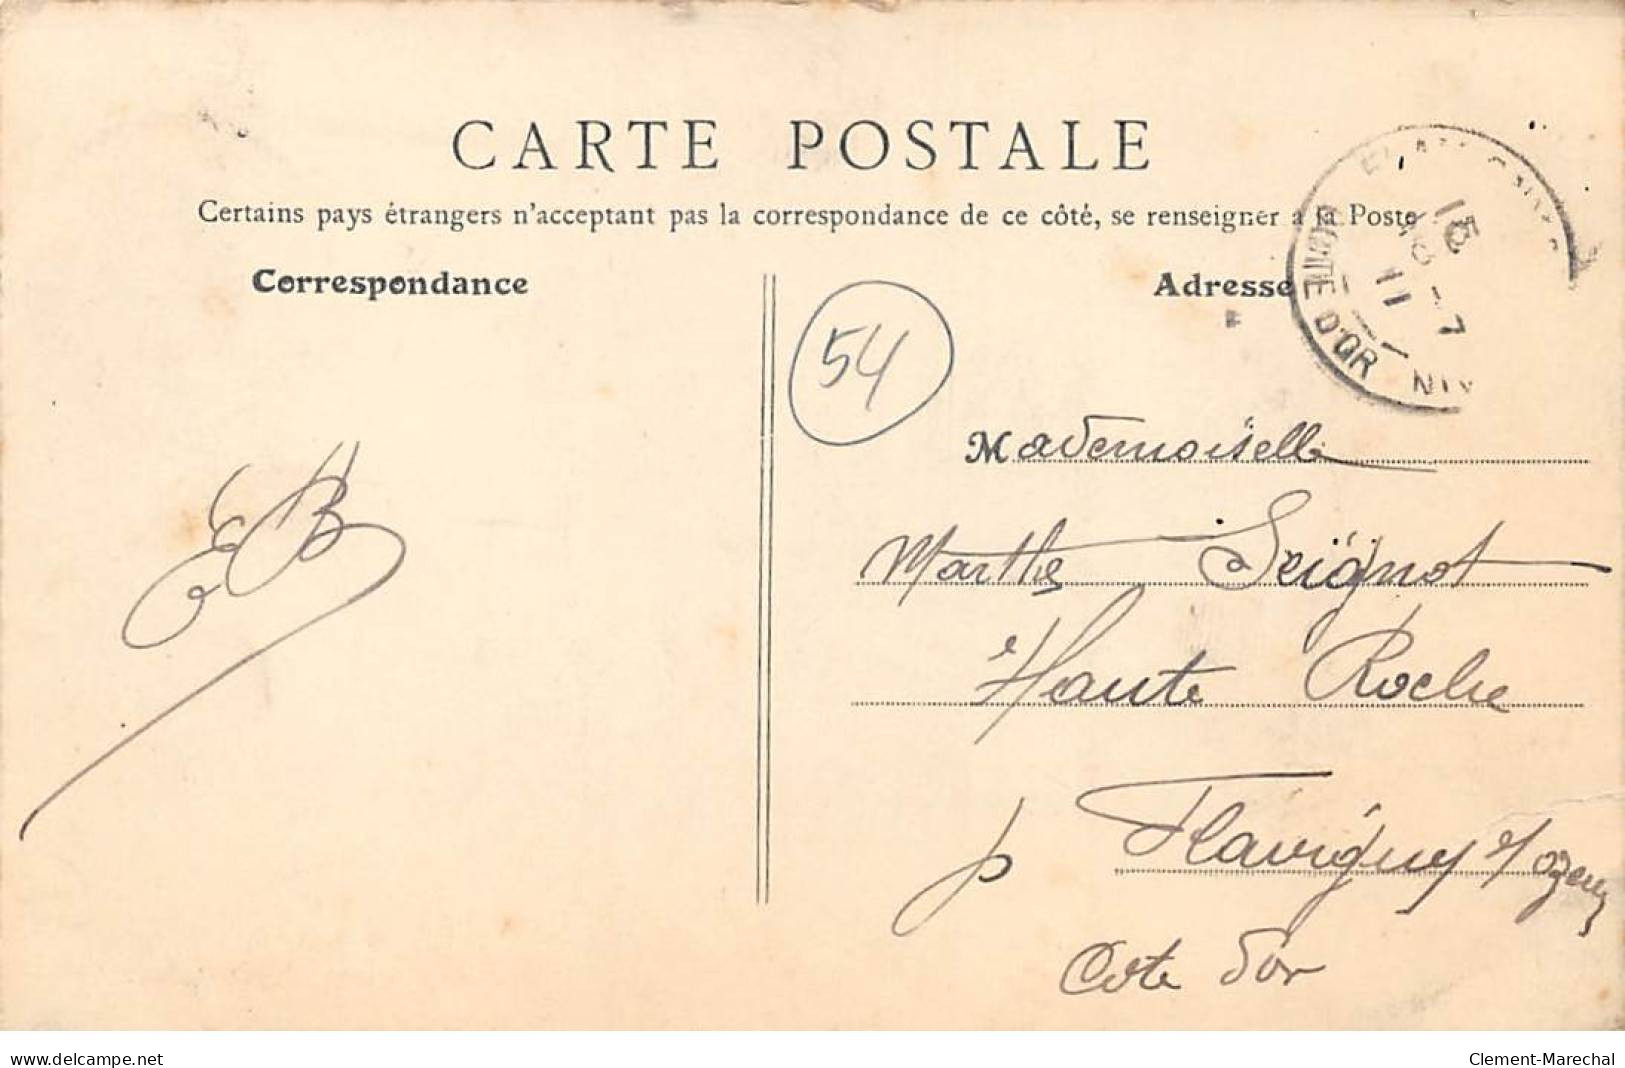 CARTE POSTALE
Certains pays étrangers n'acceptant pas la correspondance de ce côté, se renseigner à la Poste
Correspondance
Adresse
15
11 -7
CÔTE D'OR
54
Mademoiselle
Marthe Seignot
Haute Roche
p Flavigny s/ Ozerain
Cote d'or
EB
www.delcampe.net
Clement-Marechal